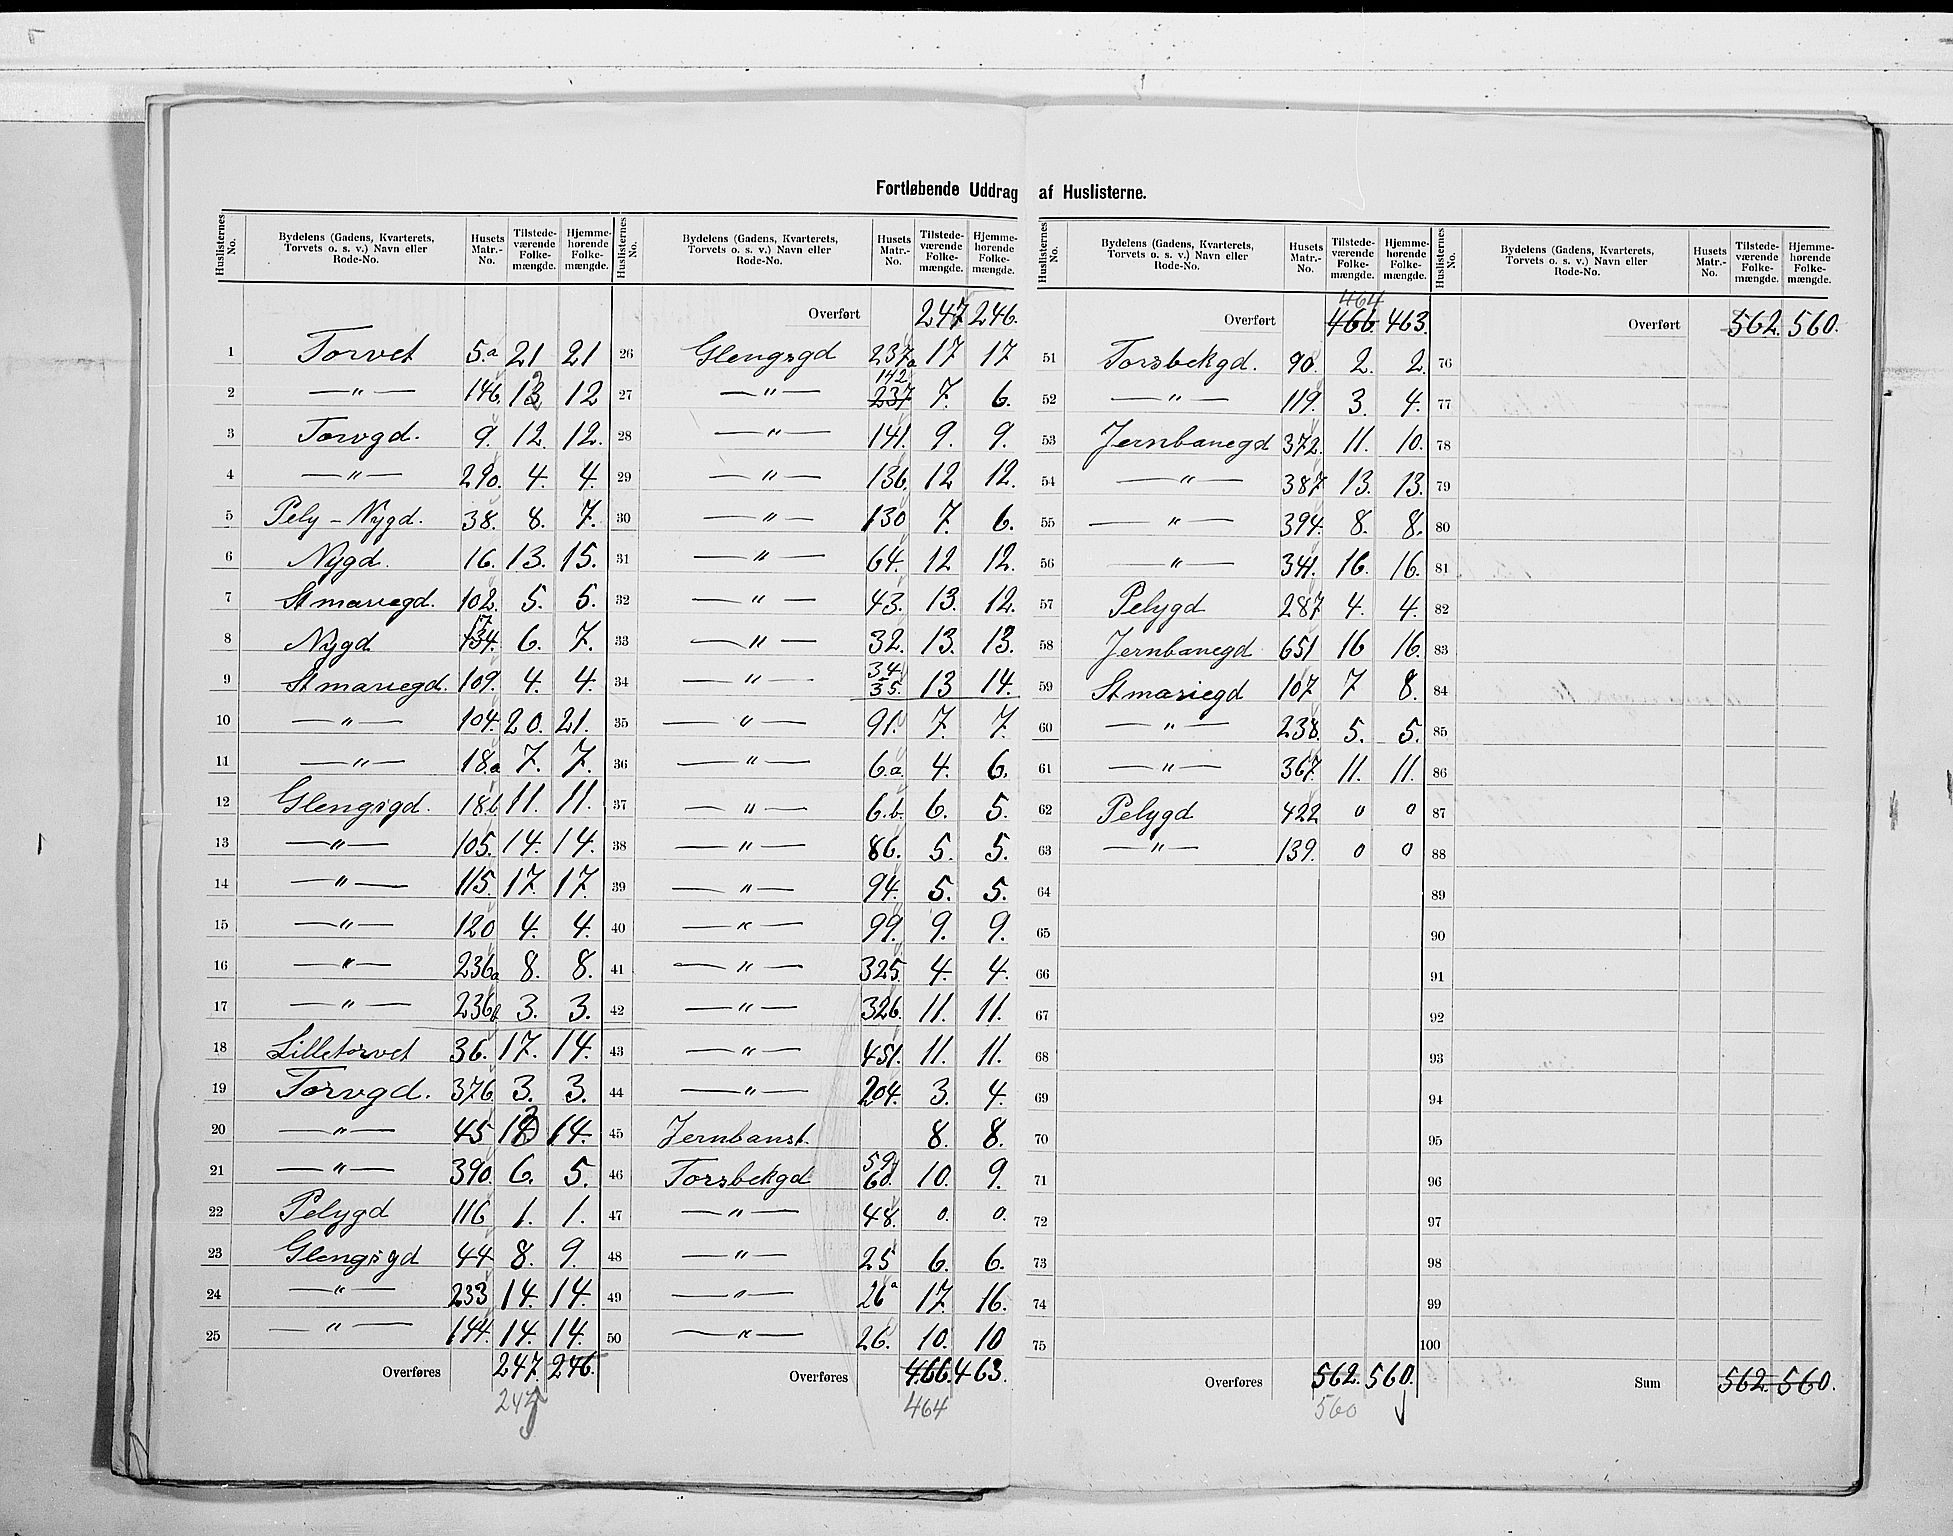 Fortløbende Uddrag af Huslisterne.
Huslisternes No. | Bydelens (Gadens, Kvarterets, Torvets o. s. v.) Navn eller Rode-No. | Husets Matr.-No. | Tilstedeværende Folkemængde. | Hjemmehørende Folkemængde.
1 Torvet 5.a 21 21
2 —〃— 146. 12 12
3 Torvgd. 9. 12. 12.
4 —〃— 290. 4. 4.
5 Pely - Nygd. 38. 8. 7.
6 Nygd. 16. 13. 15.
7 St mariegd. 102. 5. 5.
8 Nygd 17 134. 6. 7.
9 St mariegd. 109. 4. 4.
10 —〃— 104. 20. 21.
11 —〃— 18.a 7. 7.
12 Glengsgd. 18b 11. 11.
13 —〃— 105. 14. 14.
14 —〃— 115. 17. 17.
15 —〃— 120 4. 4.
16 —〃— 236a 8. 8.
17 —〃— 236b 3. 3.
18 Lilletorvet 36. 17. 14.
19 Torvgd. 376. 3. 3.
20 —〃— 45 13 14.
21 —〃— 390. 6. 5.
22 Pelygd 116 1. 1.
23 Glengsgd 44 8. 9.
24 —〃— 233 14. 14.
25 —〃— 144. 14. 14.
Overføres 247. 246.
247
Huslisternes No. | Bydelens (Gadens, Kvarterets, Torvets o. s. v.) Navn eller Rode-No. | Husets Matr.-No. | Tilstedeværende Folkemængde. | Hjemmehørende Folkemængde.
Overført 247 246.
26 Glengsgd 237a 17 17
27 —〃— 142 237 7. 6.
28 —〃— 141. 9. 9.
29 —〃— 136. 12 12.
30 —〃— 130 7. 6.
31 —〃— 64. 12 12.
32 —〃— 43. 13. 12.
33 —〃— 32. 13. 13.
34 —〃— 34/35. 13 14.
35 —〃— 91. 7. 7.
36 —〃— 6.a. 4. 6.
37 —〃— 6.b. 6. 5.
38 —〃— 86. 5. 5.
39 —〃— 94. 5. 5.
40 —〃— 99. 9. 9.
41 —〃— 325. 4. 4.
42 —〃— 326. 11. 11.
43 —〃— 451. 11. 11.
44 —〃— 204. 3. 4.
45 Jernbanst. 8. 8.
46 Torsbekgd 59/60. 10. 9.
47 —〃— 48. 0. 0.
48 —〃— 25 6. 6.
49 —〃— 26a 17. 16.
50 —〃— 26. 10. 10
Overføres 466. 463.
464
Huslisternes No. | Bydelens (Gadens, Kvarterets, Torvets o. s. v.) Navn eller Rode-No. | Husets Matr.-No. | Tilstedeværende Folkemængde. | Hjemmehørende Folkemængde.
464
Overført 466 463.
51 Torsbekgd. 90. 2. 2.
52 —〃— 119. 3. 4.
53 Jernbanegd 372. 11. 10.
54 —〃— 387 13. 13.
55 —〃— 394. 8. 8.
56 —〃— 341. 16. 16.
57 Pelygd 287 4. 4.
58 Jernbanegd 651 16 16.
59 St mariegd 107 7 8.
60 —〃— 238. 5. 5.
61 —〃— 367. 11. 11.
62 Pelygd 422 0 0
63 —〃— 139. 0 0
64
65
66
67
68
69
70
71
72
73
74
75
Overføres 562. 560.
560
Huslisternes No. | Bydelens (Gadens, Kvarterets, Torvets o. s. v.) Navn eller Rode-No. | Husets Matr.-No. | Tilstedeværende Folkemængde. | Hjemmehørende Folkemængde.
Overført 562. 560.
76
77
78
79
80
81
82
83
84
85
86
87
88
89
90
91
92
93
94
95
96
97
98
99
100
Sum 562. 560.